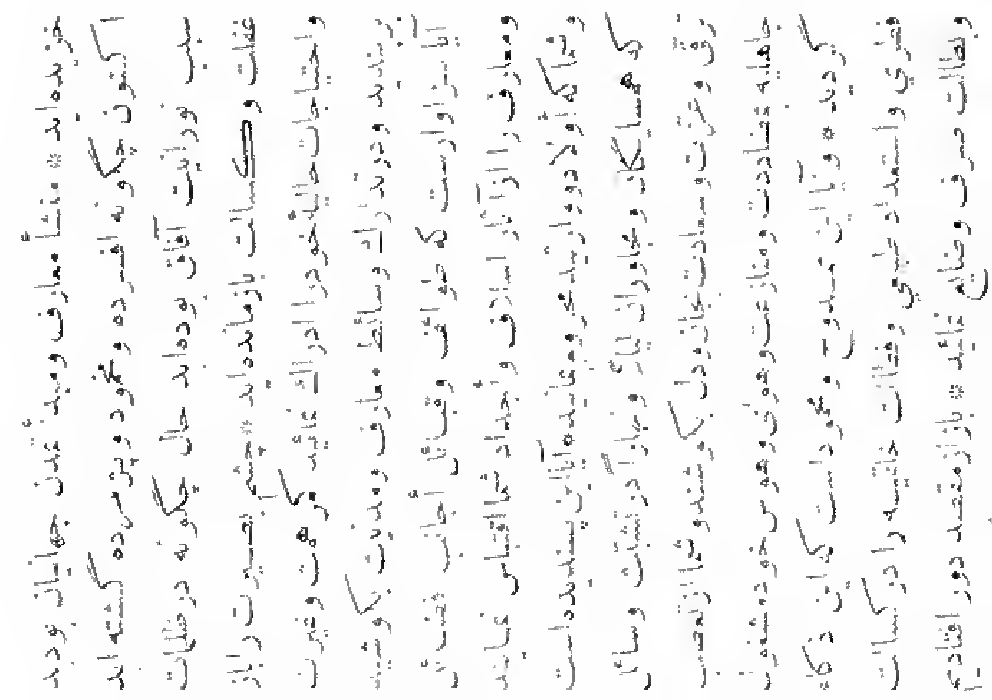 خزیده‌اند * منشأ معارف ومبدء تمدن جهانیان بودید
اکنون چگونه افسرده ومخمود و پژمرده گشته‌اید
سبب نورانیت آفاق بوده‌اید حال چگونه در ظلمات
غفلت وکسالت بازمانده‌اید *چشم بصیرت را باز
واحتیاجات حالیهٔ خود را ادراک نمائید کمر همت وغیرت
بربندید ودر تدارک وسائط معارف ومدنیت بکوشید
آیا سزاوارست که طوائف وقبائل أجانب فضائل
ومعارف را از آثار اسلاف وأجداد شما اقتباس نمایند
وشما که أولاد ووارثید محروم بمانید آیا این پسندیده است
که همسایگان ومجاوران لیلاً ونهاراً در تشبث وسائل
ترقی وعزت وسعادت بجان ودل بکوشند وشما از تعصب
جاهلیه بمضادت ومنازعت وهوی وهوس خود مشغول
گردید * وآیا این ممدوح ومحمود است که این ذکاء
فطری واستعداد طبیعی وفطانت خلقیه را در کسالت
وبطالت صرف وضایع نمائید * باز از مقصد دور افتادیم